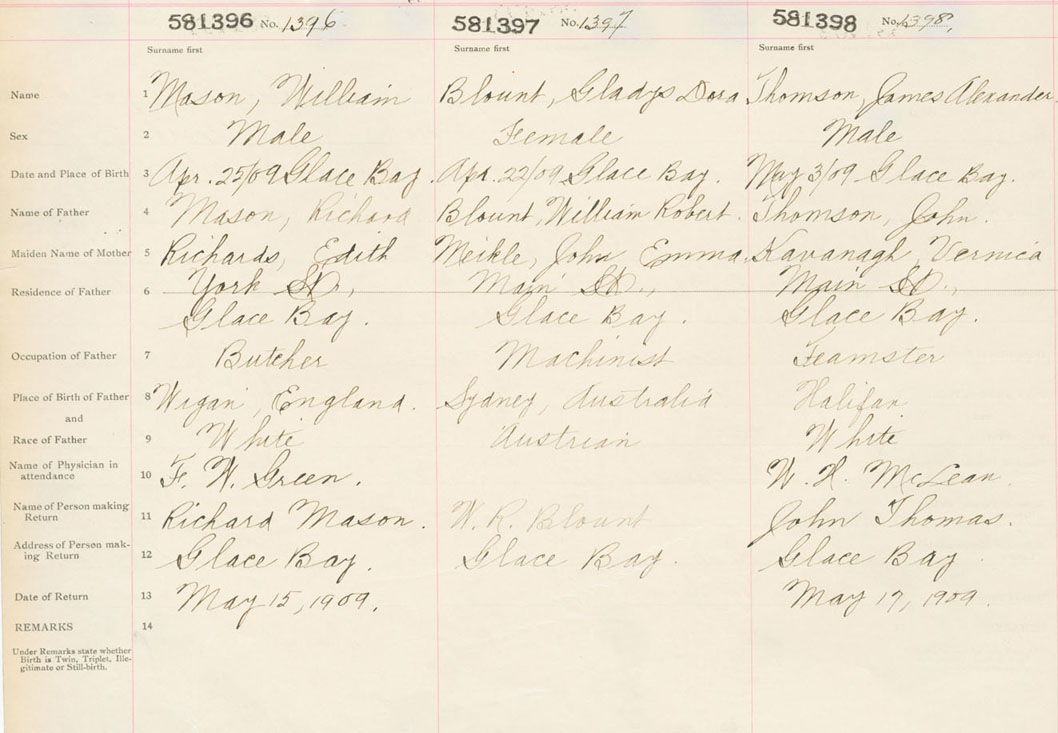 581396 No. 1396 581397 No. 1397 581398 No. 1398,
Surname first Surname first Surname first
Name 1 Mason, William Blount, Gladys Dora Thomson, James Alexander
Sex 2 Male Female Male
Date and Place of Birth 3 Apr. 25/09 Glace Bay. Apr. 22/09 Glace Bay. May 3/09 Glace Bay.
Name of Father 4 Mason, Richard Blount, William Robert. Thomson, John.
Maiden Name of Mother 5 Richards, Edith Meikle, John, Emma, Kavanagh, Vernica
Residence of Father 6 York St., Main St., Main St.,
Glace Bay. Glace Bay. Glace Bay.
Occupation of Father 7 Butcher Machinist Teamster
Place of Birth of Father 8 Wigan, England. Sydney, Australia Halifax
and
Race of Father 9 White Austrian White
Name of Physician in
attendance 10 F. W. Green. W. H. McLean.
Name of Person making
Return 11 Richard Mason. W. R. Blount John Thomas.
Address of Person mak-
ing Return 12 Glace Bay. Glace Bay. Glace Bay
Date of Return 13 May 15, 1909. May 17, 1909.
REMARKS 14
Under Remarks state whether
Birth is Twin, Triplet, Ille-
gitimate or Still-birth.